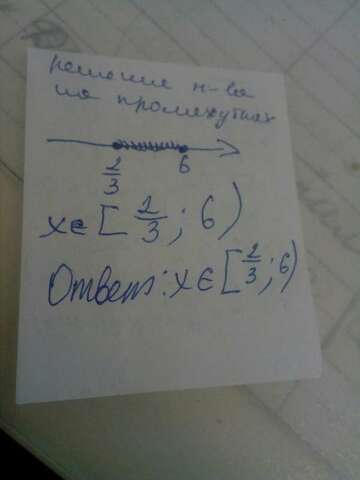 решение н-ва
по промежуткам
2/3 6
x∈[2/3; 6)
Ответ: x∈[2/3; 6)